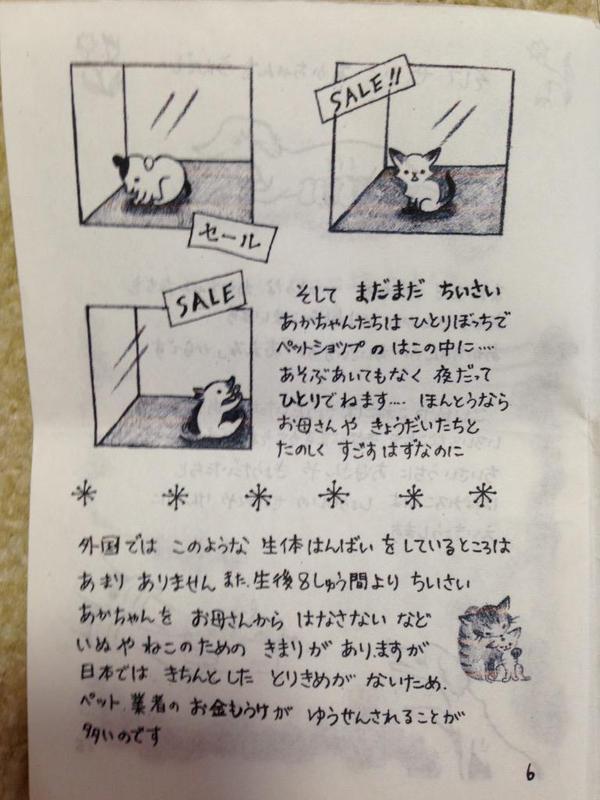 SALE!!
セール
SALE
そして まだまだ ちいさい
あかちゃんたちは ひとりぼっちで
ペットショップの はこの中に‥‥
あそぶあいてもなく 夜だって
ひとりでねます‥‥ ほんとうなら
お母さんや きょうだいたちと
たのしく すごすはずなのに
外国では このような 生体はんばい をしているところは
あまり ありません また、生後8しゅう間より ちいさい
あかちゃんを お母さんから はなさない など
いぬや ねこのための きまりが ありますが
日本では きちんとした とりきめが ないため、
ペット業者の お金もうけが ゆうせんされることが
多いのです
6